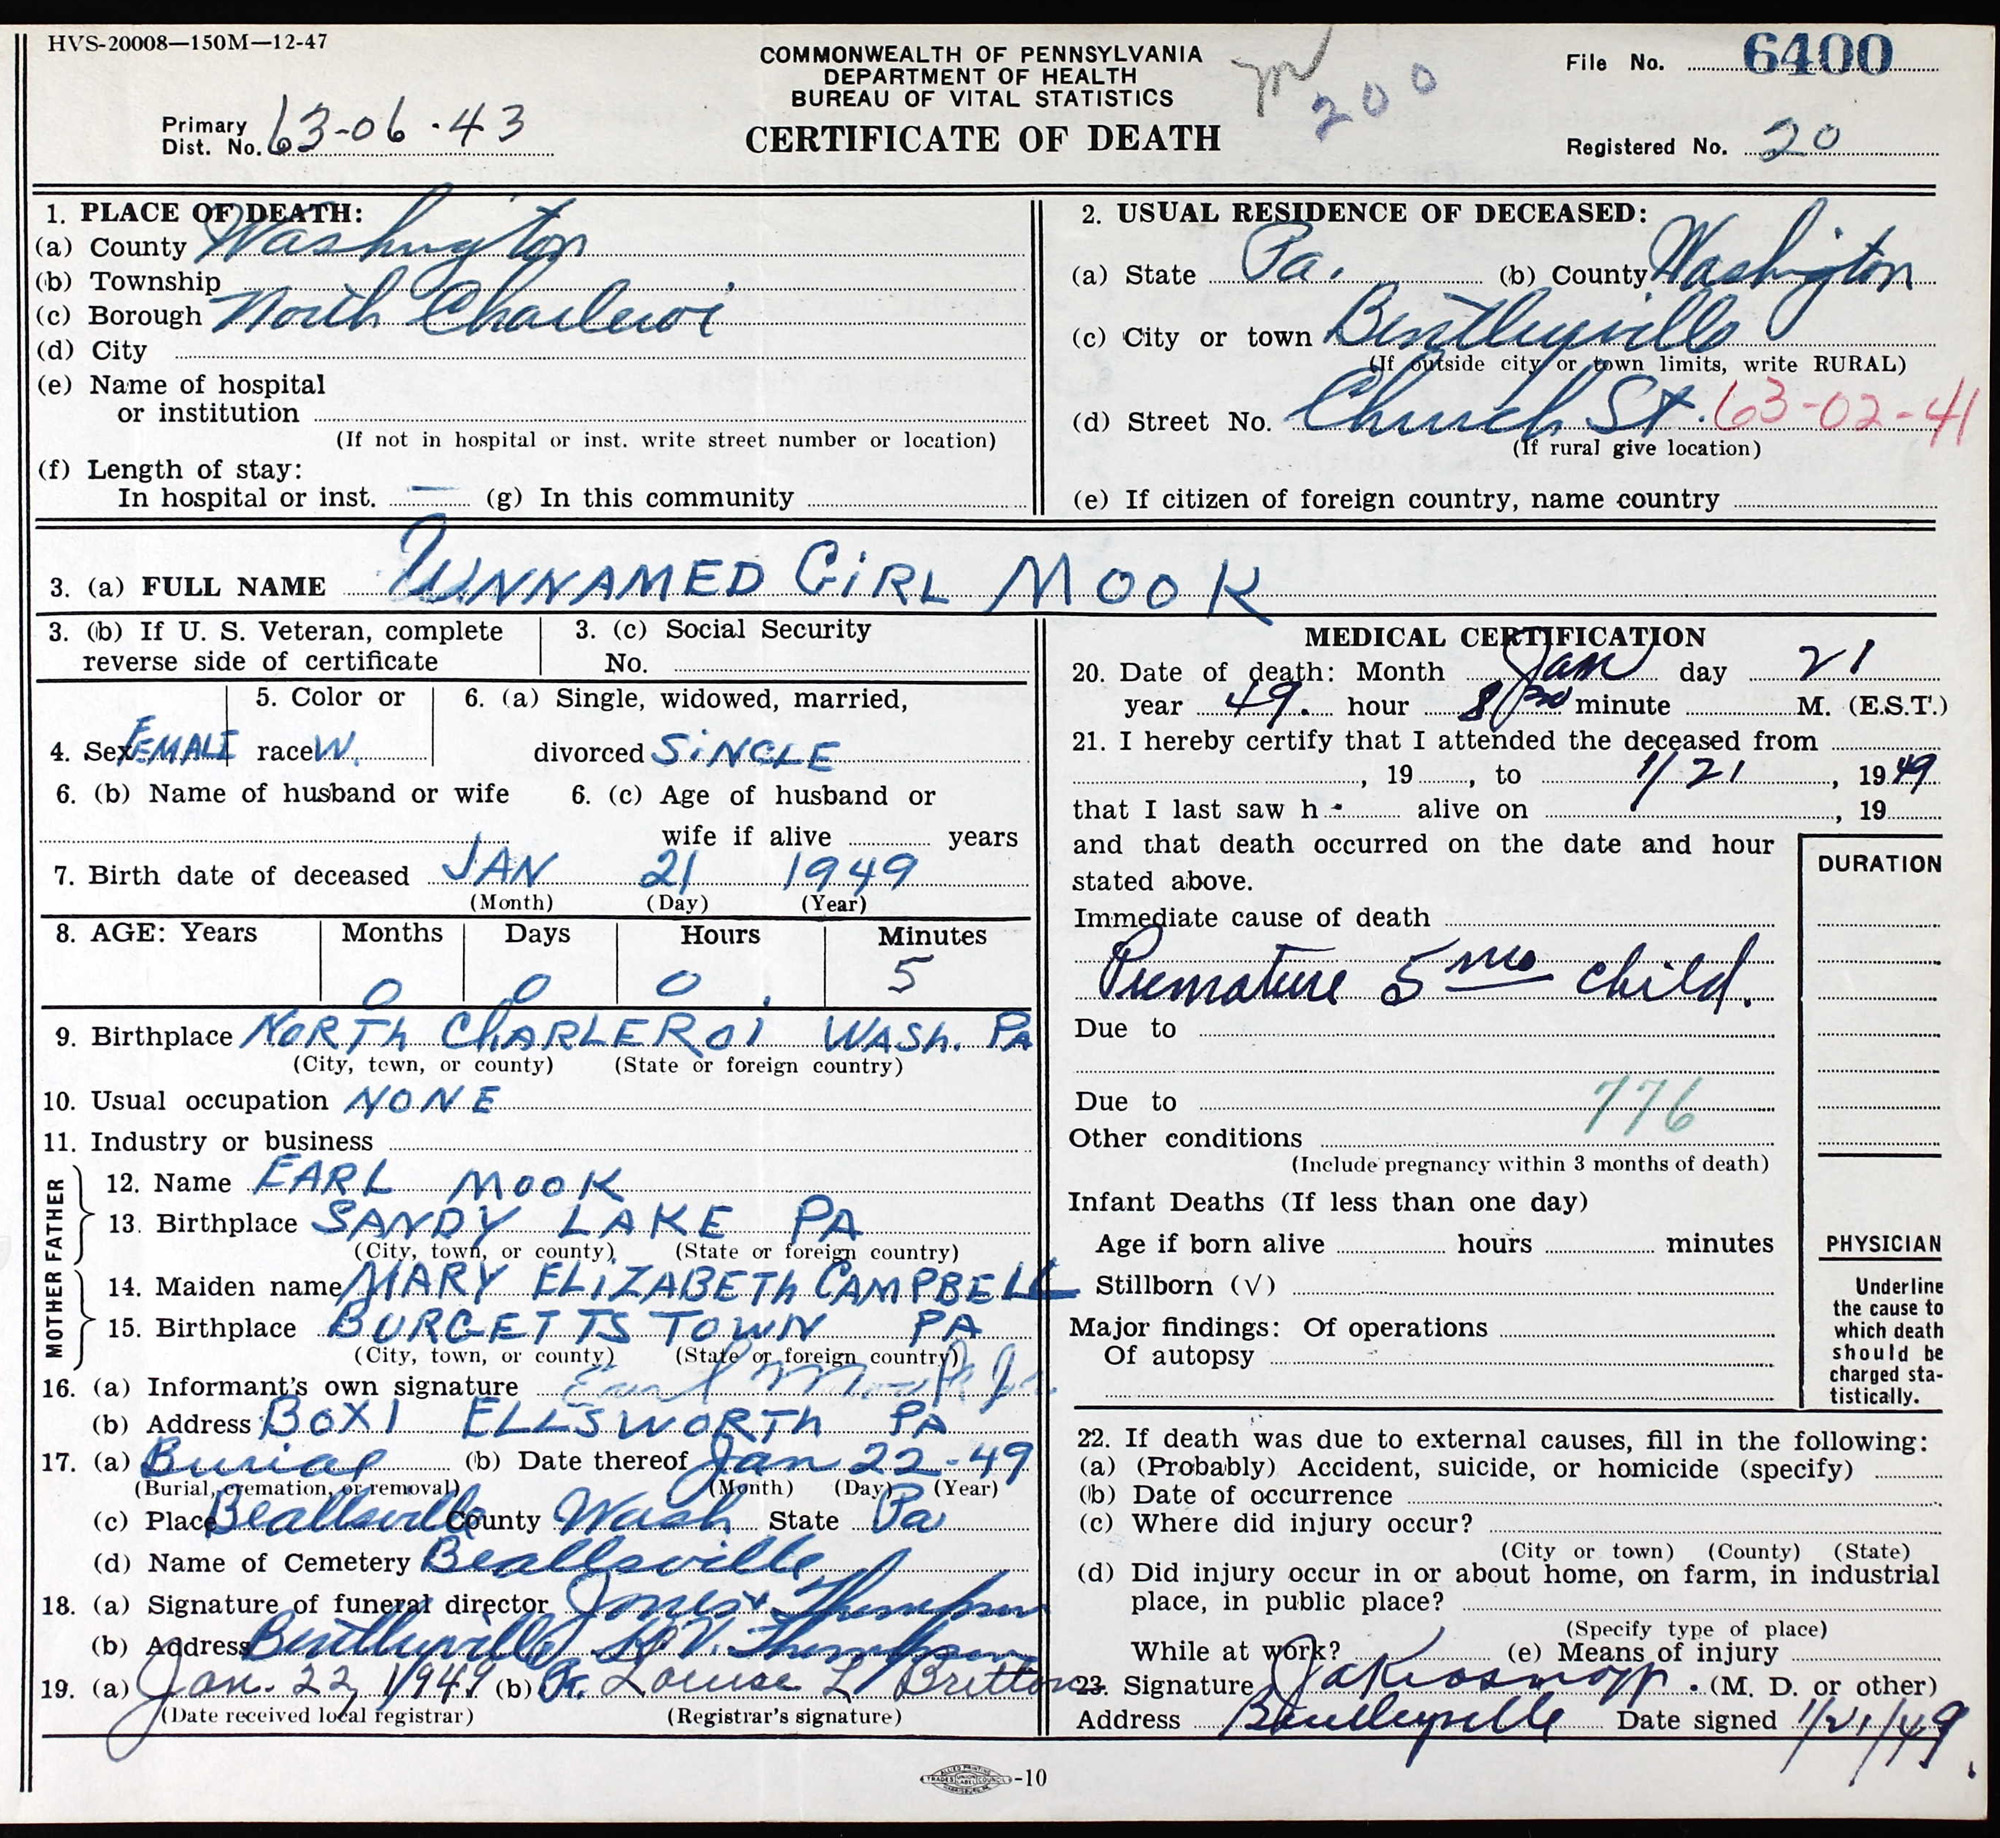 HVS-20008—150M—12-47
COMMONWEALTH OF PENNSYLVANIA
DEPARTMENT OF HEALTH
BUREAU OF VITAL STATISTICS
CERTIFICATE OF DEATH
200
File No. 6400
Primary
Dist. No. 63-06-43
Registered No. 20
1. PLACE OF DEATH:
(a) County Washington
(b) Township
(c) Borough North Charleroi
(d) City
(e) Name of hospital
or institution
(If not in hospital or inst. write street number or location)
(f) Length of stay:
In hospital or inst. — (g) In this community
2. USUAL RESIDENCE OF DECEASED:
(a) State Pa. (b) County Washington
(c) City or town Bentleyville
(If outside city or town limits, write RURAL)
(d) Street No. Church St. 63-02-41
(If rural give location)
(e) If citizen of foreign country, name country
3. (a) FULL NAME UNNAMED GIRL MOOK
3. (b) If U. S. Veteran, complete
reverse side of certificate
3. (c) Social Security
No.
4. Sex FEMALE
5. Color or
race W.
6. (a) Single, widowed, married,
divorced SINGLE
6. (b) Name of husband or wife
6. (c) Age of husband or
wife if alive years
7. Birth date of deceased JAN 21 1949
(Month) (Day) (Year)
8. AGE: Years Months Days Hours Minutes
0 0 0 5
9. Birthplace NORTH CHARLEROI WASH. PA
(City, town, or county) (State or foreign country)
10. Usual occupation NONE
11. Industry or business
FATHER
12. Name EARL MOOK
13. Birthplace SANDY LAKE PA
(City, town, or county) (State or foreign country)
MOTHER
14. Maiden name MARY ELIZABETH CAMPBELL
15. Birthplace BURGETTSTOWN PA
(City, town, or county) (State or foreign country)
16. (a) Informant's own signature Earl Mook Jr.
(b) Address BOX 1 ELLSWORTH PA
17. (a) Burial (b) Date thereof Jan 22-49
(Burial, cremation, or removal) (Month) (Day) (Year)
(c) Place Beallsville County Wash State Pa
(d) Name of Cemetery Beallsville
18. (a) Signature of funeral director Jones & Thompson
(b) Address Bentleyville Thompson
19. (a) Jan. 22, 1949 (b) Louise L. Britton
(Date received local registrar) (Registrar's signature)
MEDICAL CERTIFICATION
20. Date of death: Month Jan day 21
year 49. hour 8 30 minute M. (E.S.T.)
21. I hereby certify that I attended the deceased from
, 19 , to 1/21 , 19 49
that I last saw h - alive on , 19
and that death occurred on the date and hour
stated above.
DURATION
Immediate cause of death
Premature 5 mo child.
Due to
Due to 776
Other conditions
(Include pregnancy within 3 months of death)
Infant Deaths (If less than one day)
Age if born alive hours minutes
Stillborn (√)
Major findings: Of operations
Of autopsy
PHYSICIAN
Underline
the cause to
which death
should be
charged sta-
tistically.
22. If death was due to external causes, fill in the following:
(a) (Probably) Accident, suicide, or homicide (specify)
(b) Date of occurrence
(c) Where did injury occur?
(City or town) (County) (State)
(d) Did injury occur in or about home, on farm, in industrial
place, in public place?
(Specify type of place)
While at work? (e) Means of injury
23. Signature (M. D. or other)
Address Bentleyville Date signed 1/21/49.
-10